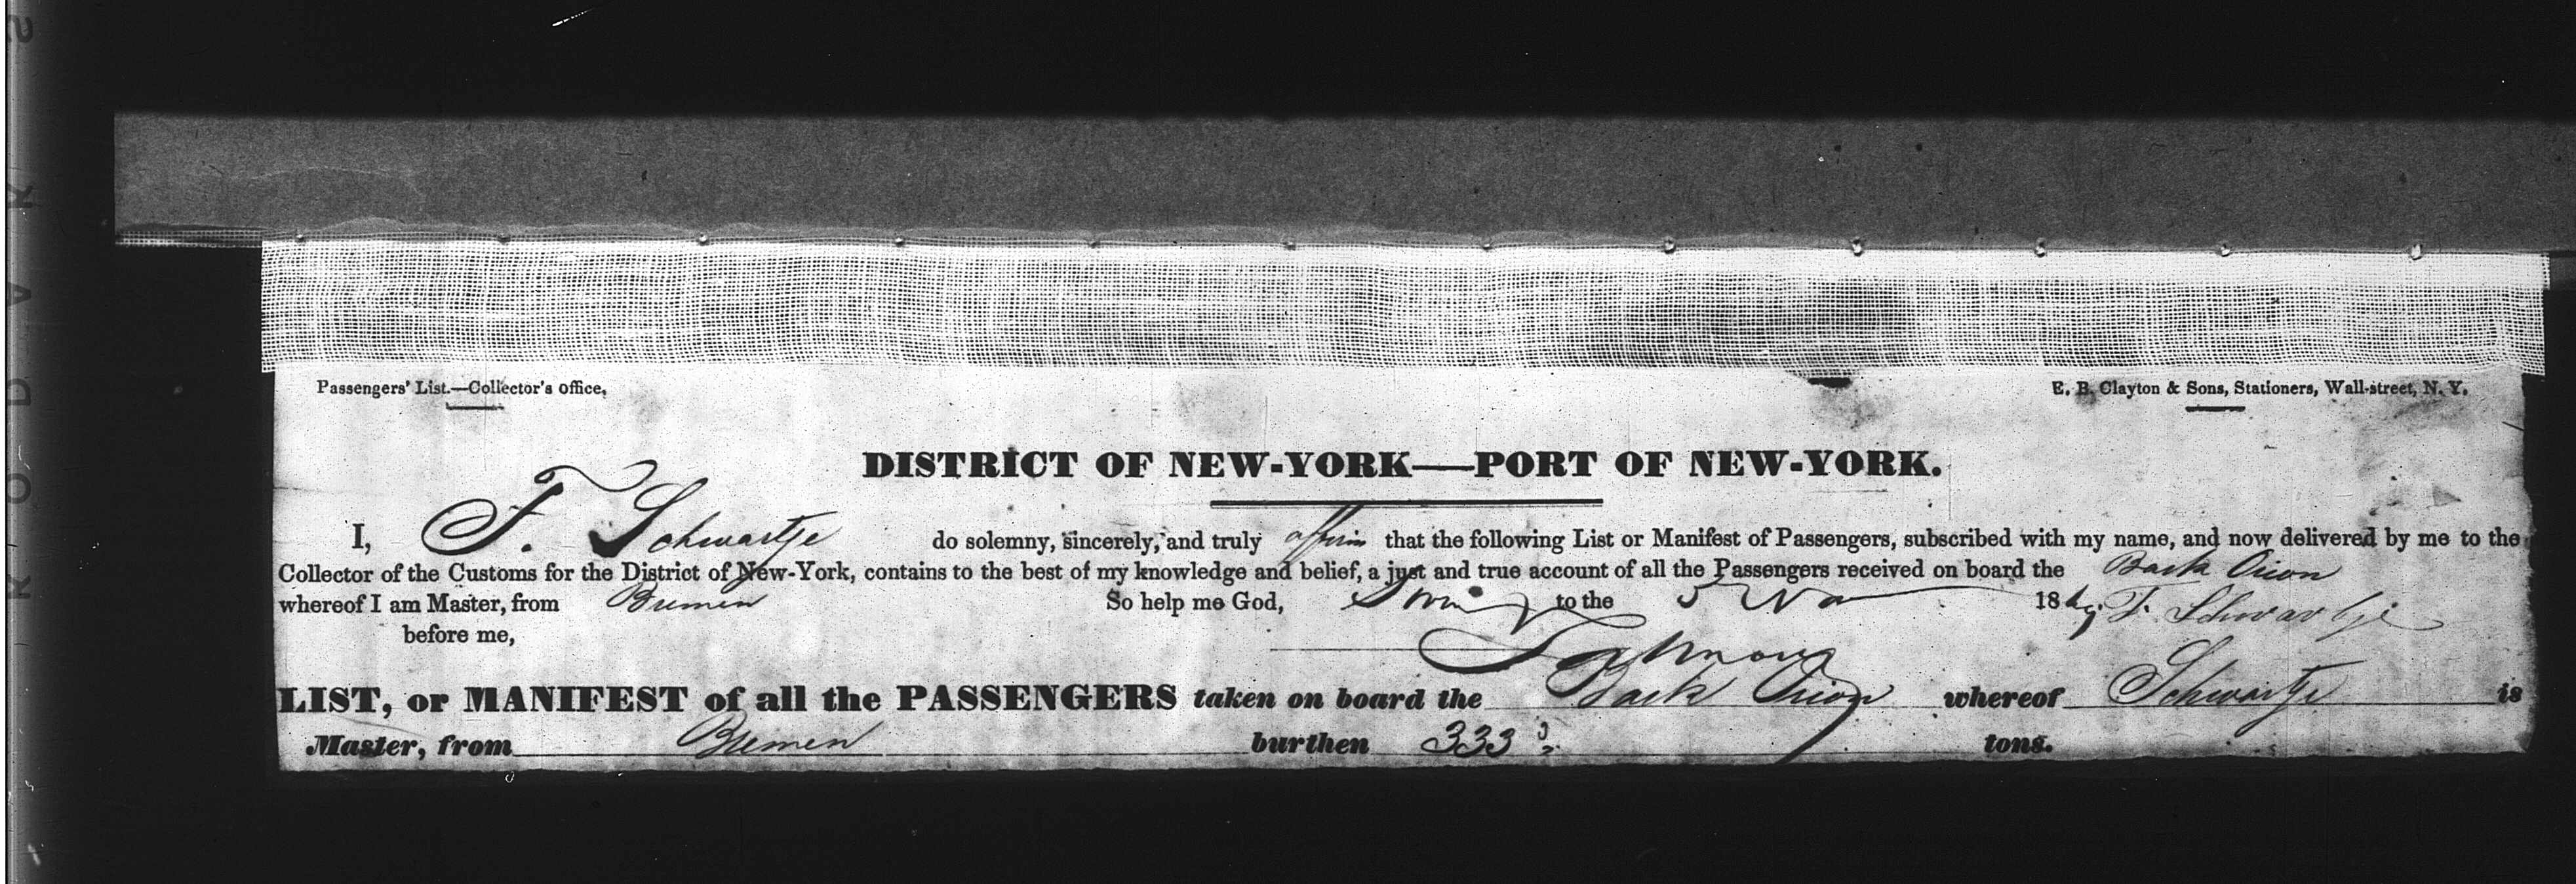 Passengers' List.—Collector's office,
E. B. Clayton & Sons, Stationers, Wall-street, N. Y.
DISTRICT OF NEW-YORK—PORT OF NEW-YORK.
I, F. Schwartje do solemny, sincerely, and truly affirm that the following List or Manifest of Passengers, subscribed with my name, and now delivered by me to the
Collector of the Customs for the District of New-York, contains to the best of my knowledge and belief, a just and true account of all the Passengers received on board the Bark Orion
whereof I am Master, from Bremen So help me God, to the 5 Nov 18 F. Schwartje
before me,
LIST, or MANIFEST of all the PASSENGERS taken on board the Bark Orion whereof Schwartje is
Master, from Bremen burthen 333 tons.